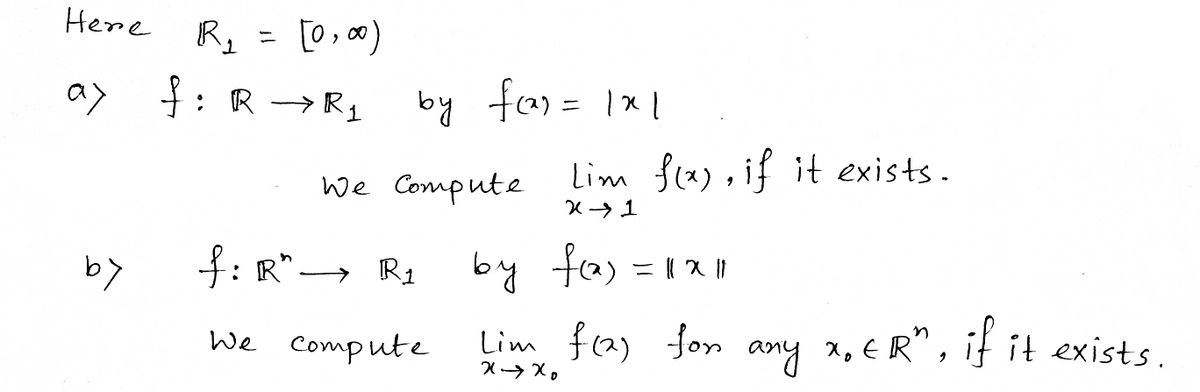 Here ℝ₁ = [0, ∞)
a) f : ℝ → ℝ₁ by f(x) = |x|
We compute lim f(x), if it exists.
x → 1
b) f : ℝⁿ → ℝ₁ by f(x) = ‖x‖
We compute Lim f(x) for any x₀ ∈ ℝⁿ, if it exists.
x → x₀